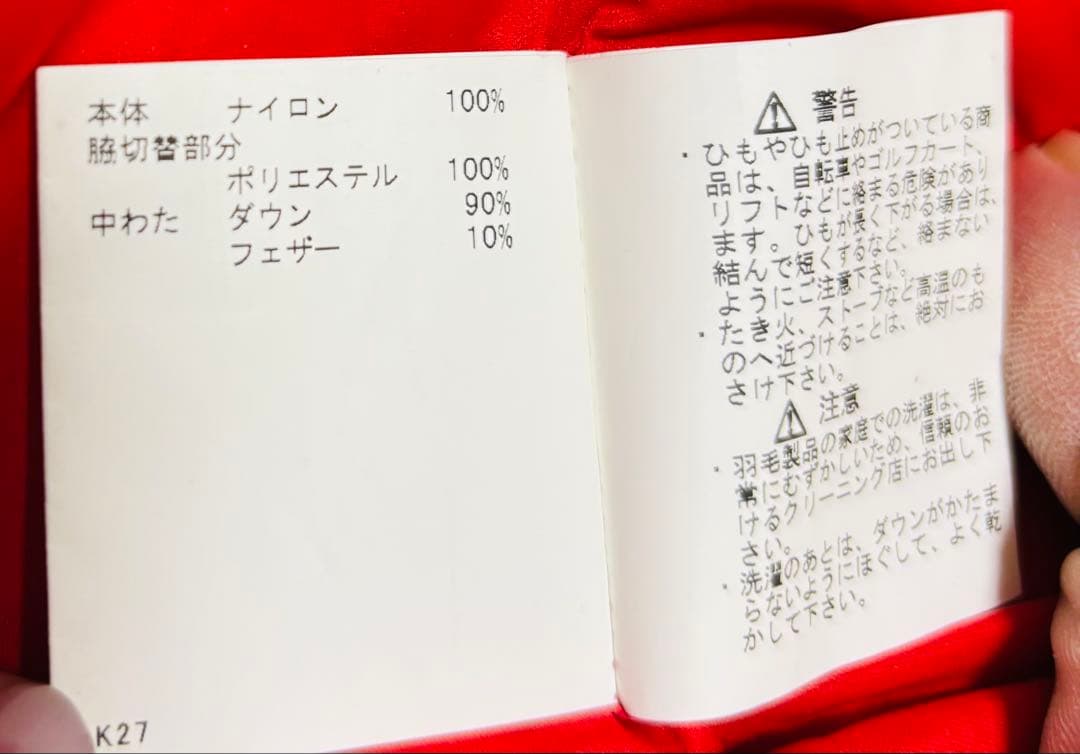 本体 ナイロン 100%
脇切替部分
ポリエステル 100%
中わた ダウン 90%
フェザー 10%
K27
警告
・ひもやひも止めがついている商
品は、自転車やゴルフカート、
リフトなどに絡まる危険があり
ます。ひもが長く下がる場合は、
結んで短くするなど、絡まない
ようにご注意下さい。
・たき火、ストーブなど高温のも
のへ近づけることは、絶対にお
さけ下さい。
注意
・羽毛製品の家庭での洗濯は、非
常にむずかしいため、信頼のお
けるクリーニング店にお出し下
さい。
・洗濯のあとは、ダウンがかたま
らないようにほぐして、よく乾
かして下さい。